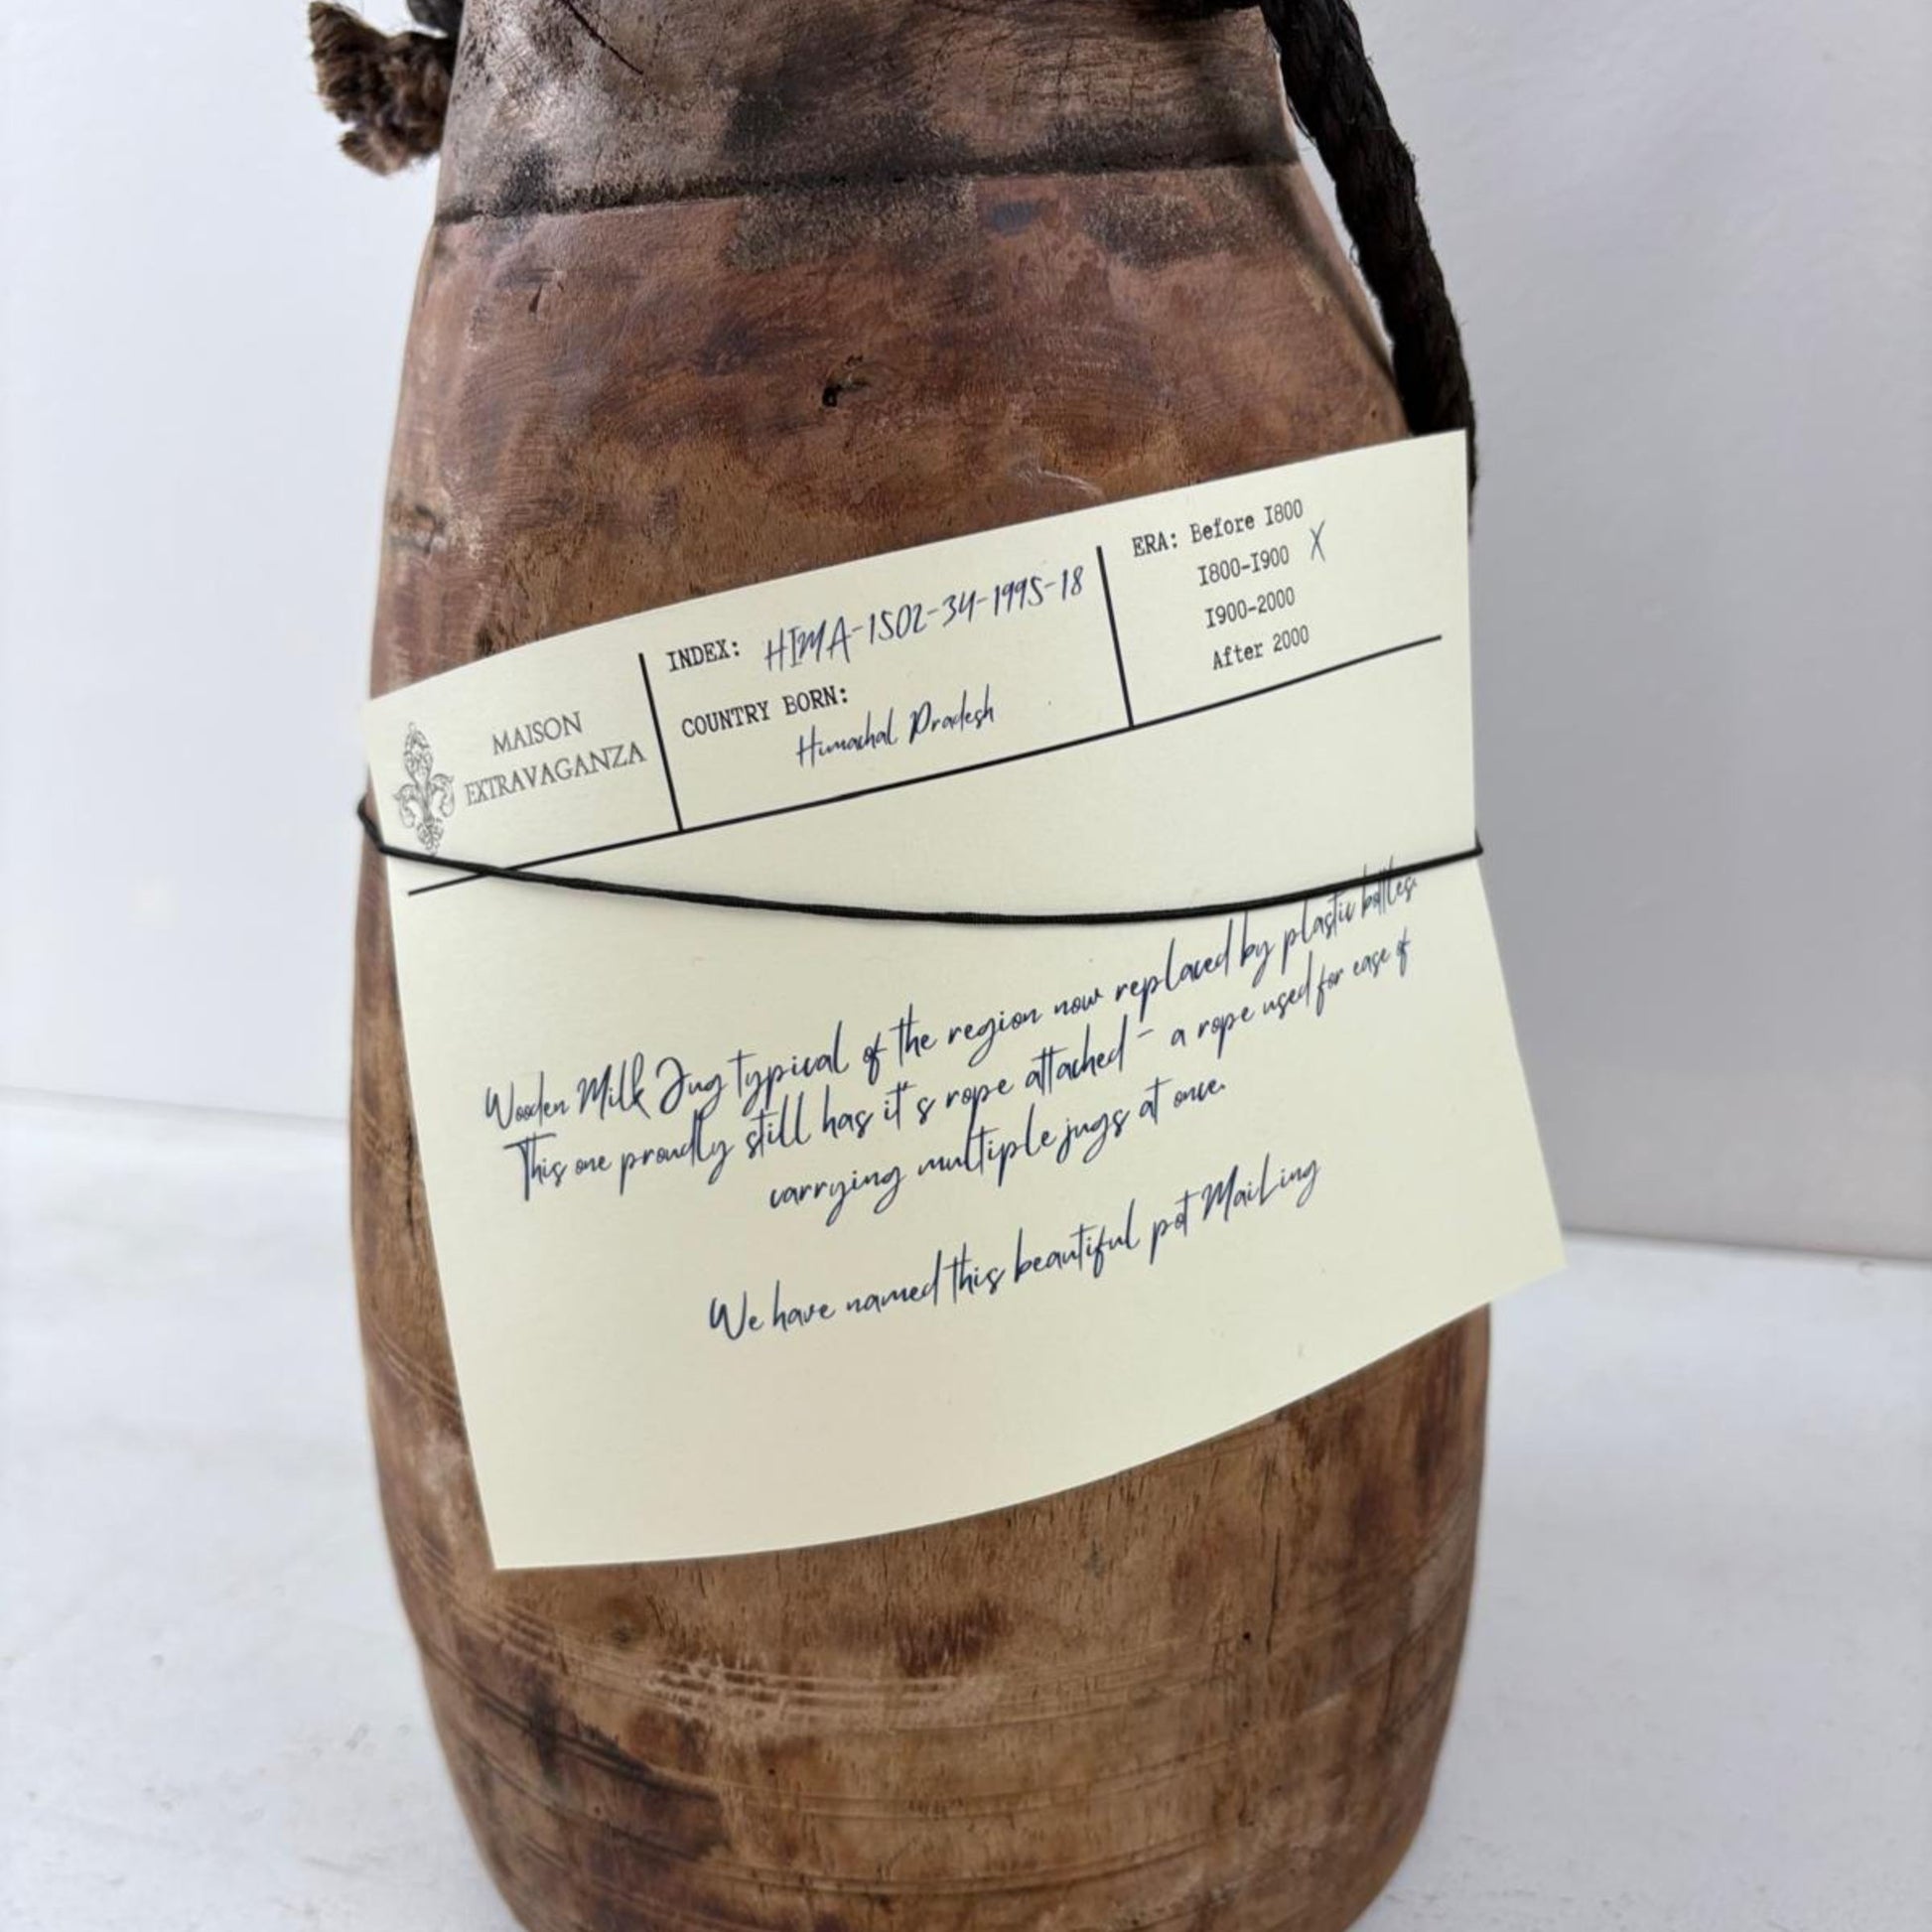 MAISON
EXTRAVAGANZA
INDEX: HIMA-1502-34-1995-18
COUNTRY BORN:
Himachal Pradesh
ERA: Before 1800
1800-1900 X
1900-2000
After 2000
Wooden Milk Jug typical of the region now replaced by plastic bottles.
This one proudly still has it's rope attached - a rope used for ease of
carrying multiple jugs at once.
We have named this beautiful pot MaiLing